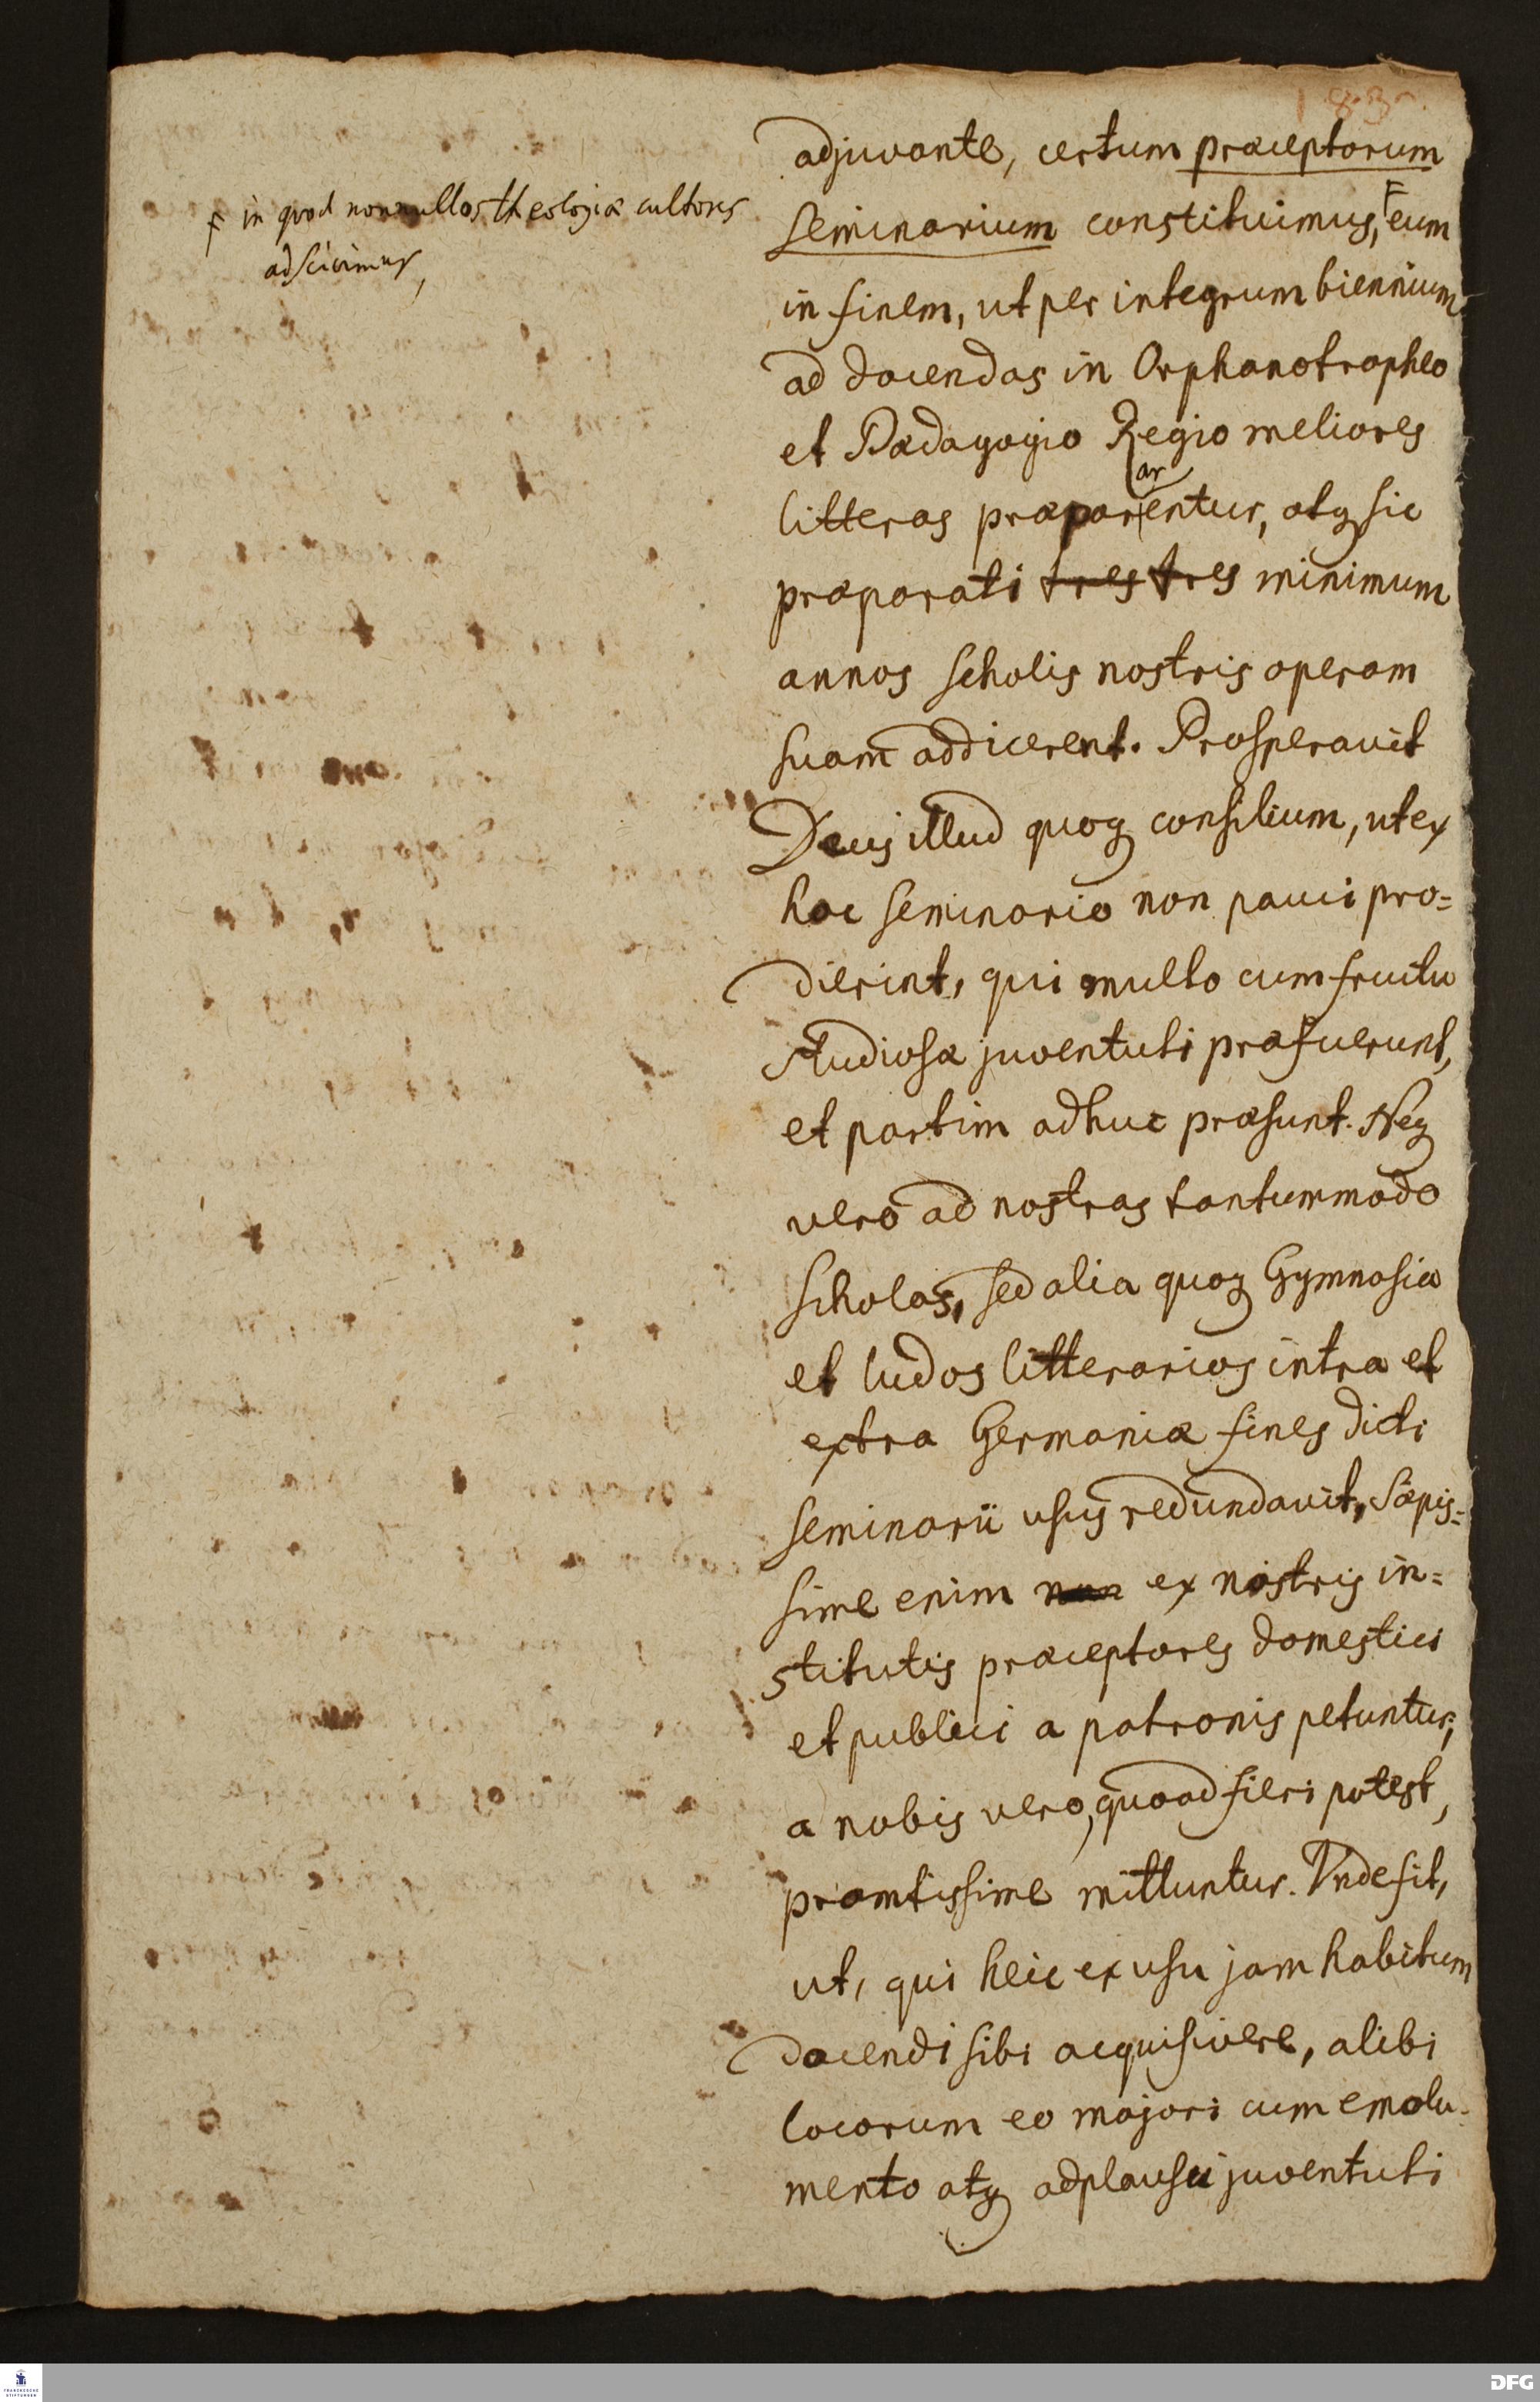 adjuvante, certum præceptorum
seminarium constituimus, F eum
F in quod nonnullos theologiæ cultores
adscivimus,
in finem, ut per integrum biennium
ad docendas in Orphanotropheo
et Pædagogio Regio meliores
ar
litteras præparentur, atq sic
præparati tres tres minimum
annos scholis nostris operam
suam addicerent. Prosperavit
Deus illud quoq consilium, ut ex
hoc seminario non pauci pro=
dierint, qui multo cum fructu
studiosæ juventuti præfuerunt,
et partim adhuc præsunt. Neq
vero ad nostras tantummodo
scholas, sed alia quoq Gymnasia
et ludos litterarios intra et
extra Germaniæ fines dicti
seminarii usus redundavit, Sæpis=
sime enim non ex nostris in=
stitutis præceptores domestici
et publici a patronis petuntur,
a nobis vero, quoad fieri potest,
promtissime mittuntur. Unde fit,
ut, qui heic ex usu jam habitum
docendi sibi acquisivere, alibi
locorum eo majori cum emolu=
mento atq adplausu juventuti
FRANCKESCHE
STIFTUNGEN
DFG